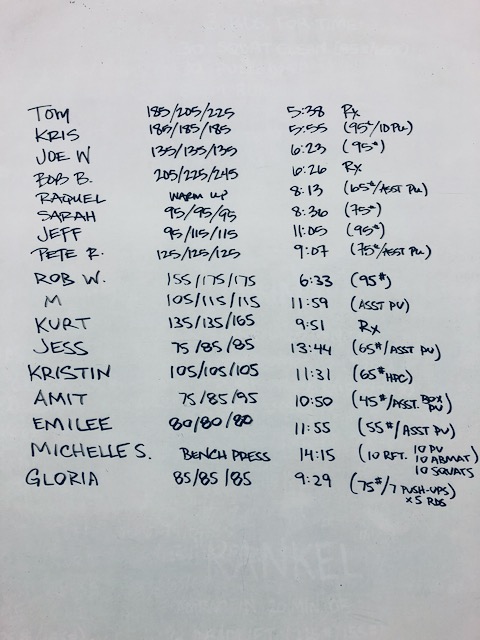 Tom 185/205/225 5:38 Rx
KRIS 185/185/185 5:55 (95#/10 PU)
JOE W 135/135/135 6:23 (95#)
BOB B. 205/225/245 6:26 Rx
RAQUEL WARM UP 8:13 (65#/ASST PU)
SARAH 95/95/95 8:36 (75#)
JEFF 95/115/115 11:05 (95#)
PETE R. 125/125/125 9:07 (75#/ASST PU)
ROB W. 155/175/175 6:33 (95#)
M 105/115/115 11:59 (ASST PU)
KURT 135/135/165 9:51 Rx
JESS 75/85/85 13:44 (65#/ASST PU)
KRISTIN 105/105/105 11:31 (65# HPC)
AMIT 75/85/95 10:50 (45#/ASST. BOX PU)
EMILEE 80/80/80 11:55 (55#/ASST PU)
MICHELLE S. BENCH PRESS 14:15 (10 RFT. 10 PU
10 ABMAT)
10 SQUATS
GLORIA 85/85/85 9:29 (75#/7 PUSH-UPS)
x 5 RDS
KANKEL